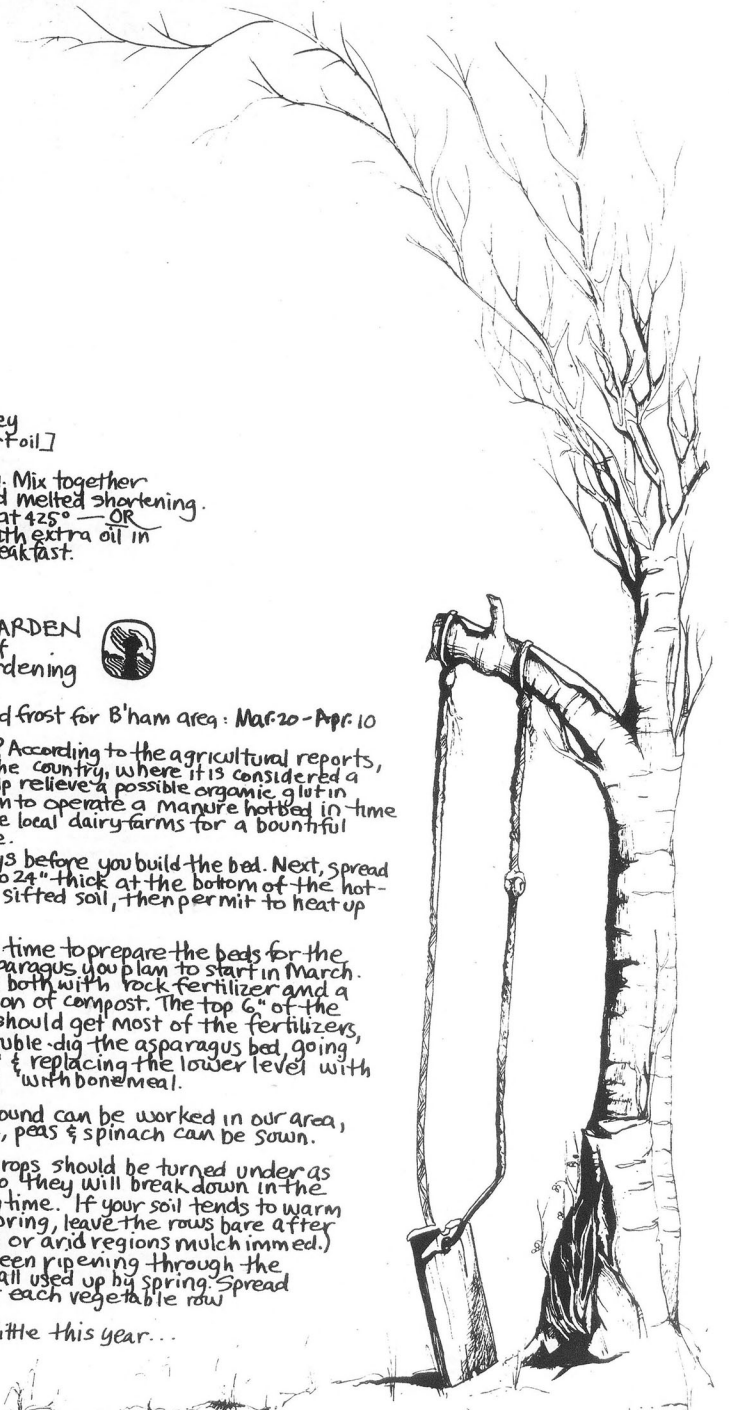 Foil]
. Mix together
melted shortening.
at 425° — OR
with extra oil in
breakfast.
GARDEN
f
dening
d frost for B'ham area: Mar. 20 - Apr. 10
? According to the agricultural reports,
he country, where it is considered a
p relieve a possible organic glut in
n to operate a manure hotbed in time
e local dairy farms for a bountiful
e.
ys before you build the bed. Next, spread
o 24" thick at the bottom of the hot-
sifted soil, then permit to heat up
time to prepare the beds for the
paragus you plan to start in March.
both with rock fertilizer and a
on of compost. The top 6" of the
should get most of the fertilizers,
uble-dig the asparagus bed, going
" & replacing the lower level with
with bonemeal.
ound can be worked in our area,
, peas & spinach can be sown.
rops should be turned under as
o they will break down in the
time. If your soil tends to warm
pring, leave the rows bare after
or arid regions mulch immed.)
een ripening through the
all used up by spring. Spread
each vegetable row
ittle this year...